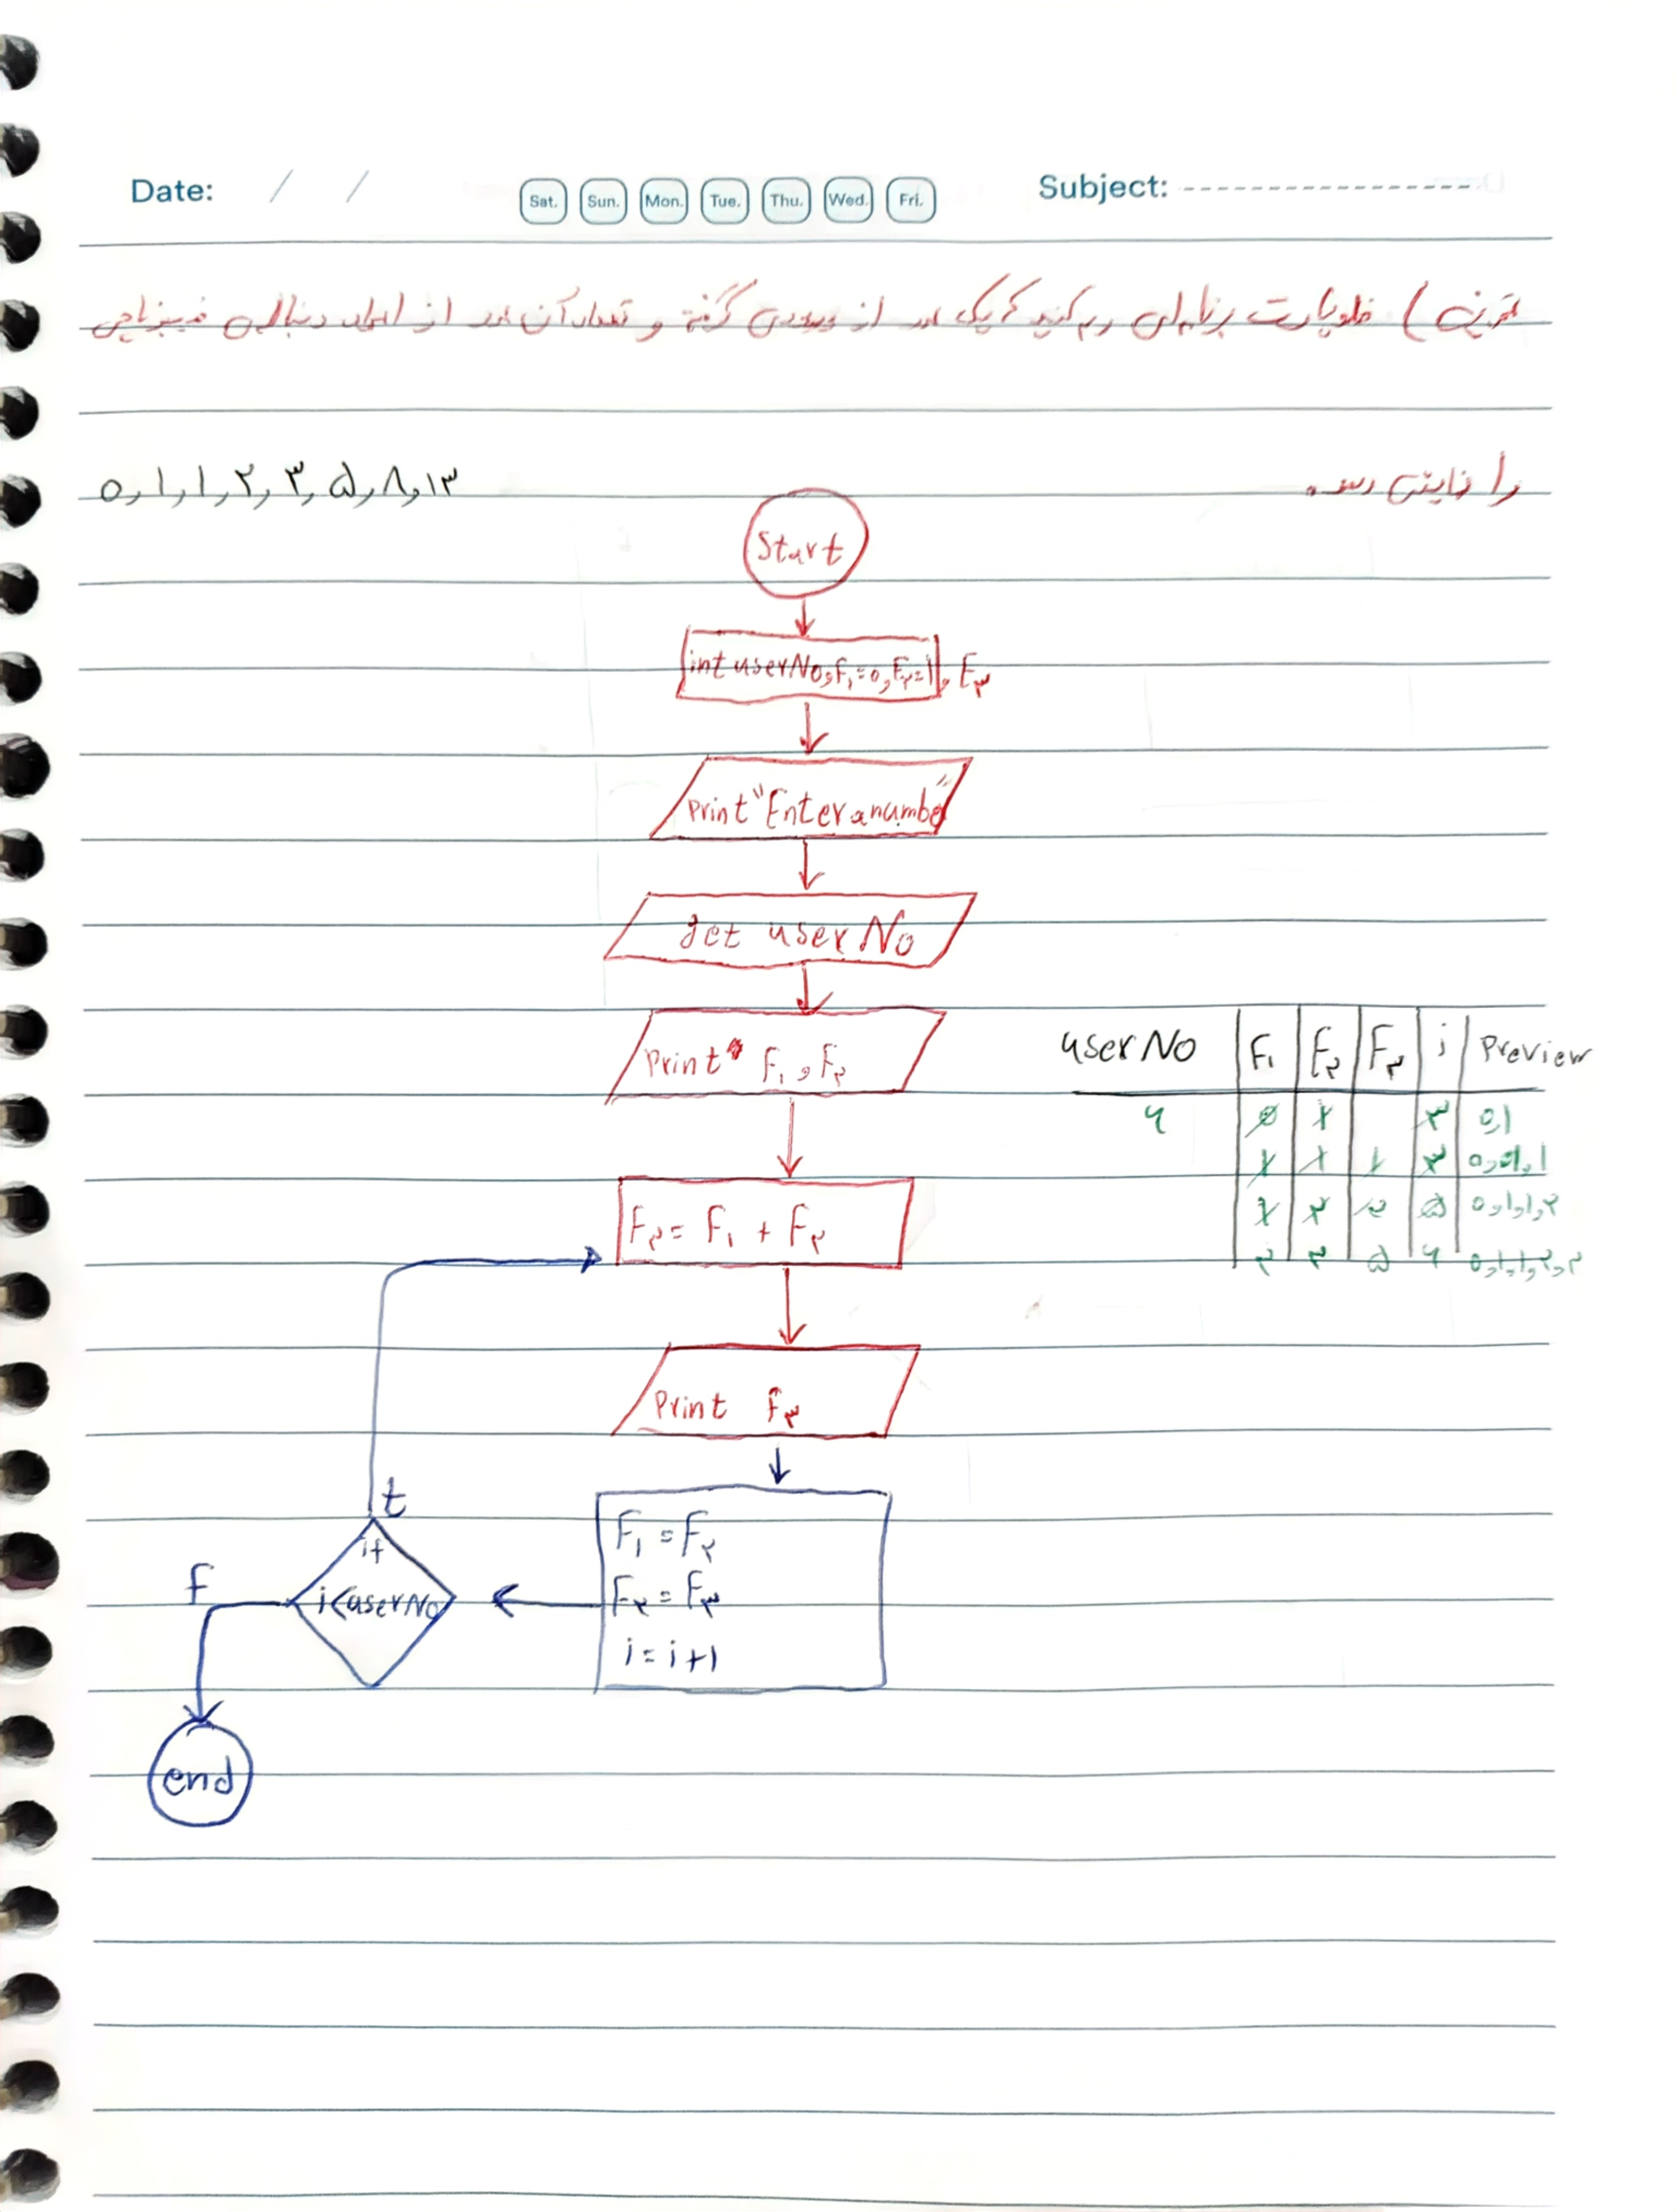 Date: / / Sat. Sun. Mon. Tue. Thu. Wed. Fri. Subject:
تمرین) فلوچارت برنامه‌ای رسم کنید که یک عدد از ورودی گرفته و تعداد آن عدد از اعداد دنباله‌ی فیبوناچی
را نمایش دهد.
۰,۱,۱,۲,۳,۵,۸,۱۳
Start
int userNo,F۱=۰,F۲=۱, F۳
Print "Enter a number"
get userNo
Print F۱,F۲
F۳= F۱ + F۲
Print F۳
F۱ = F۲
F۲ = F۳
i = i+1
if
i<userNo
t
F
end
userNo F۱ F۲ F۳ i Preview
۶ ۰ ۱ ۳ ۰,۱
۱ ۱ ۱ ۰,۱,۱
۱ ۲ ۲ ۵ ۰,۱,۱,۲
۲ ۳ ۵ ۶ ۰,۱,۱,۲,۳